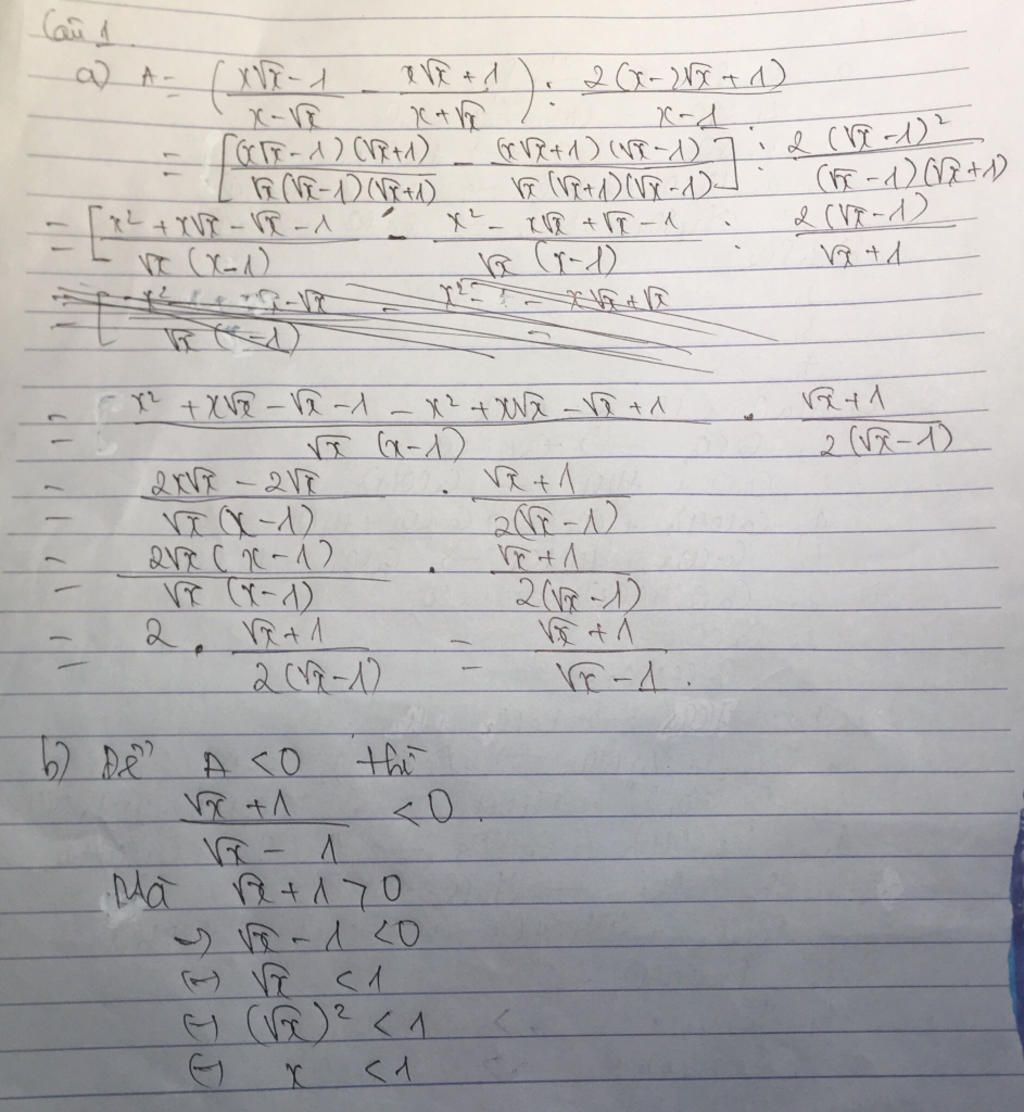 Câu 1
a) A = (x√x - 1 / x - √x - x√x + 1 / x + √x) : 2(x - 2√x + 1) / x - 1
= [(x√x - 1)(√x + 1) / √x(√x - 1)(√x + 1) - (x√x + 1)(√x - 1) / √x(√x + 1)(√x - 1)] : 2(√x - 1)² / (√x - 1)(√x + 1)
= [x² + x√x - √x - 1 / √x(x - 1) - x² - x√x + √x - 1 / √x(x - 1) : 2(√x - 1) / √x + 1
= x² + x√x - √x - 1 - x² + x√x - √x + 1 / √x(x - 1) . √x + 1 / 2(√x - 1)
= 2x√x - 2√x / √x(x - 1) . √x + 1 / 2(√x - 1)
= 2√x(x - 1) / √x(x - 1) . √x + 1 / 2(√x - 1)
= 2 . √x + 1 / 2(√x - 1) = √x + 1 / √x - 1 .
b) Để A < 0 thì
√x + 1 / √x - 1 < 0.
Mà √x + 1 > 0
→ √x - 1 < 0
(=) √x < 1
(=) (√x)² < 1
(=) x < 1